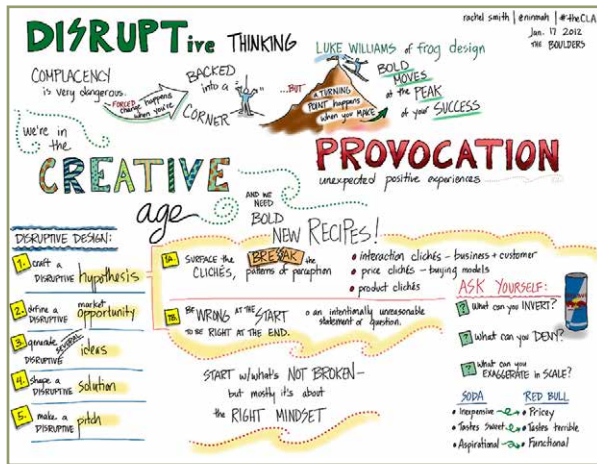 rachel smith | @ninmah | #theCLA
Jan. 17 2012
THE BOULDERS
DISRUPTive THINKING
LUKE WILLIAMS of frog design
COMPLACENCY
is very dangerous.
FORCED
change happens
when you're
BACKED
into a
CORNER
...BUT
a TURNING
POINT happens
when you MAKE
BOLD
MOVES
at the PEAK
of your SUCCESS
we're in
the
CREATIVE
age
PROVOCATION
unexpected positive experiences
AND WE
NEED
BOLD
NEW RECIPES!
DISRUPTIVE DESIGN:
1. craft a
DISRUPTIVE hypothesis
2. define a market
DISRUPTIVE opportunity
3. generate SEVERAL
DISRUPTIVE ideas
4. shape a
DISRUPTIVE solution
5. make a
DISRUPTIVE pitch
1A. SURFACE the
CLICHÉS, BREAK the
patterns of perception
• interaction clichés – business + customer
• price clichés – buying models
• product clichés
1B. BE WRONG AT THE START
TO BE RIGHT AT THE END.
o an intentionally unreasonable
statement or question.
START w/what's NOT BROKEN–
but mostly it's about
the RIGHT MINDSET
ASK YOURSELF:
? what can you INVERT?
? what can you DENY?
? what can you
EXAGGERATE in SCALE?
SODA RED BULL
• Inexpensive • Pricey
• Tastes sweet • Tastes terrible
• Aspirational • Functional